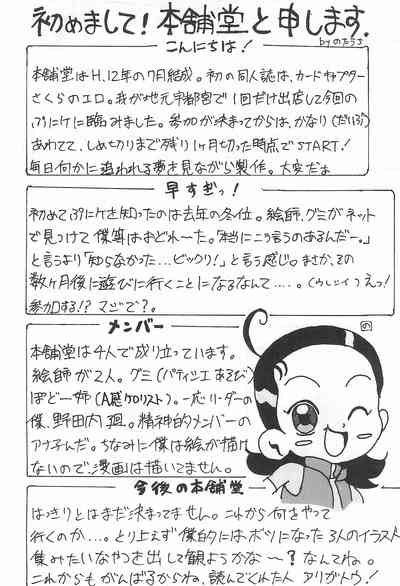 初めまして!本舗堂と申します.
byのだうさ
こんにちは!
本舗堂はH、12年の7月結成。初の同人誌は、カードキャプター
さくらのエロ。我が地元宇都宮で1回だけ出店して今回の
ぷにケに臨みました。参加が決まってからは、かなり(だいぶ)
あわてて、しめ切りまで残り1ヶ月切った時点でSTART!
毎日何かに追われる夢を見ながら製作。大変だよ
早すぎっ!
初めてぷにケを知ったのは去年の冬位。絵師、グミがネット
で見つけて僕等はおどれ〜た。「本当にこう言うのあるんだー。」
と言うより「知らなかった…ビックリ!」と言う感じ。まさか、その
数ヶ月後に遊びに行くことになるなんて……。(うしシイ)えっ!
参加する!?マジで?。
メンバー
の
本舗堂は4人で成り立っています。
絵師が2人。グミ(パティシエあるび)
ぽどー姉(A感ケロリスト)。一応リーダーの
僕、野田内廻。精神的メンバーの
アナ子んだ。ちなみに僕は絵が描け
ないので漫画は描いてません。
今後の本舗堂
はっきりとはまだ決まってません。これから何をやって
行くのか…。とりえず僕的にはボツになった3人のイラスト
集みたいなやつを出して観ようかな〜?なんてね。
これからもがんばるからね、読んでくれた人アリがトウ!